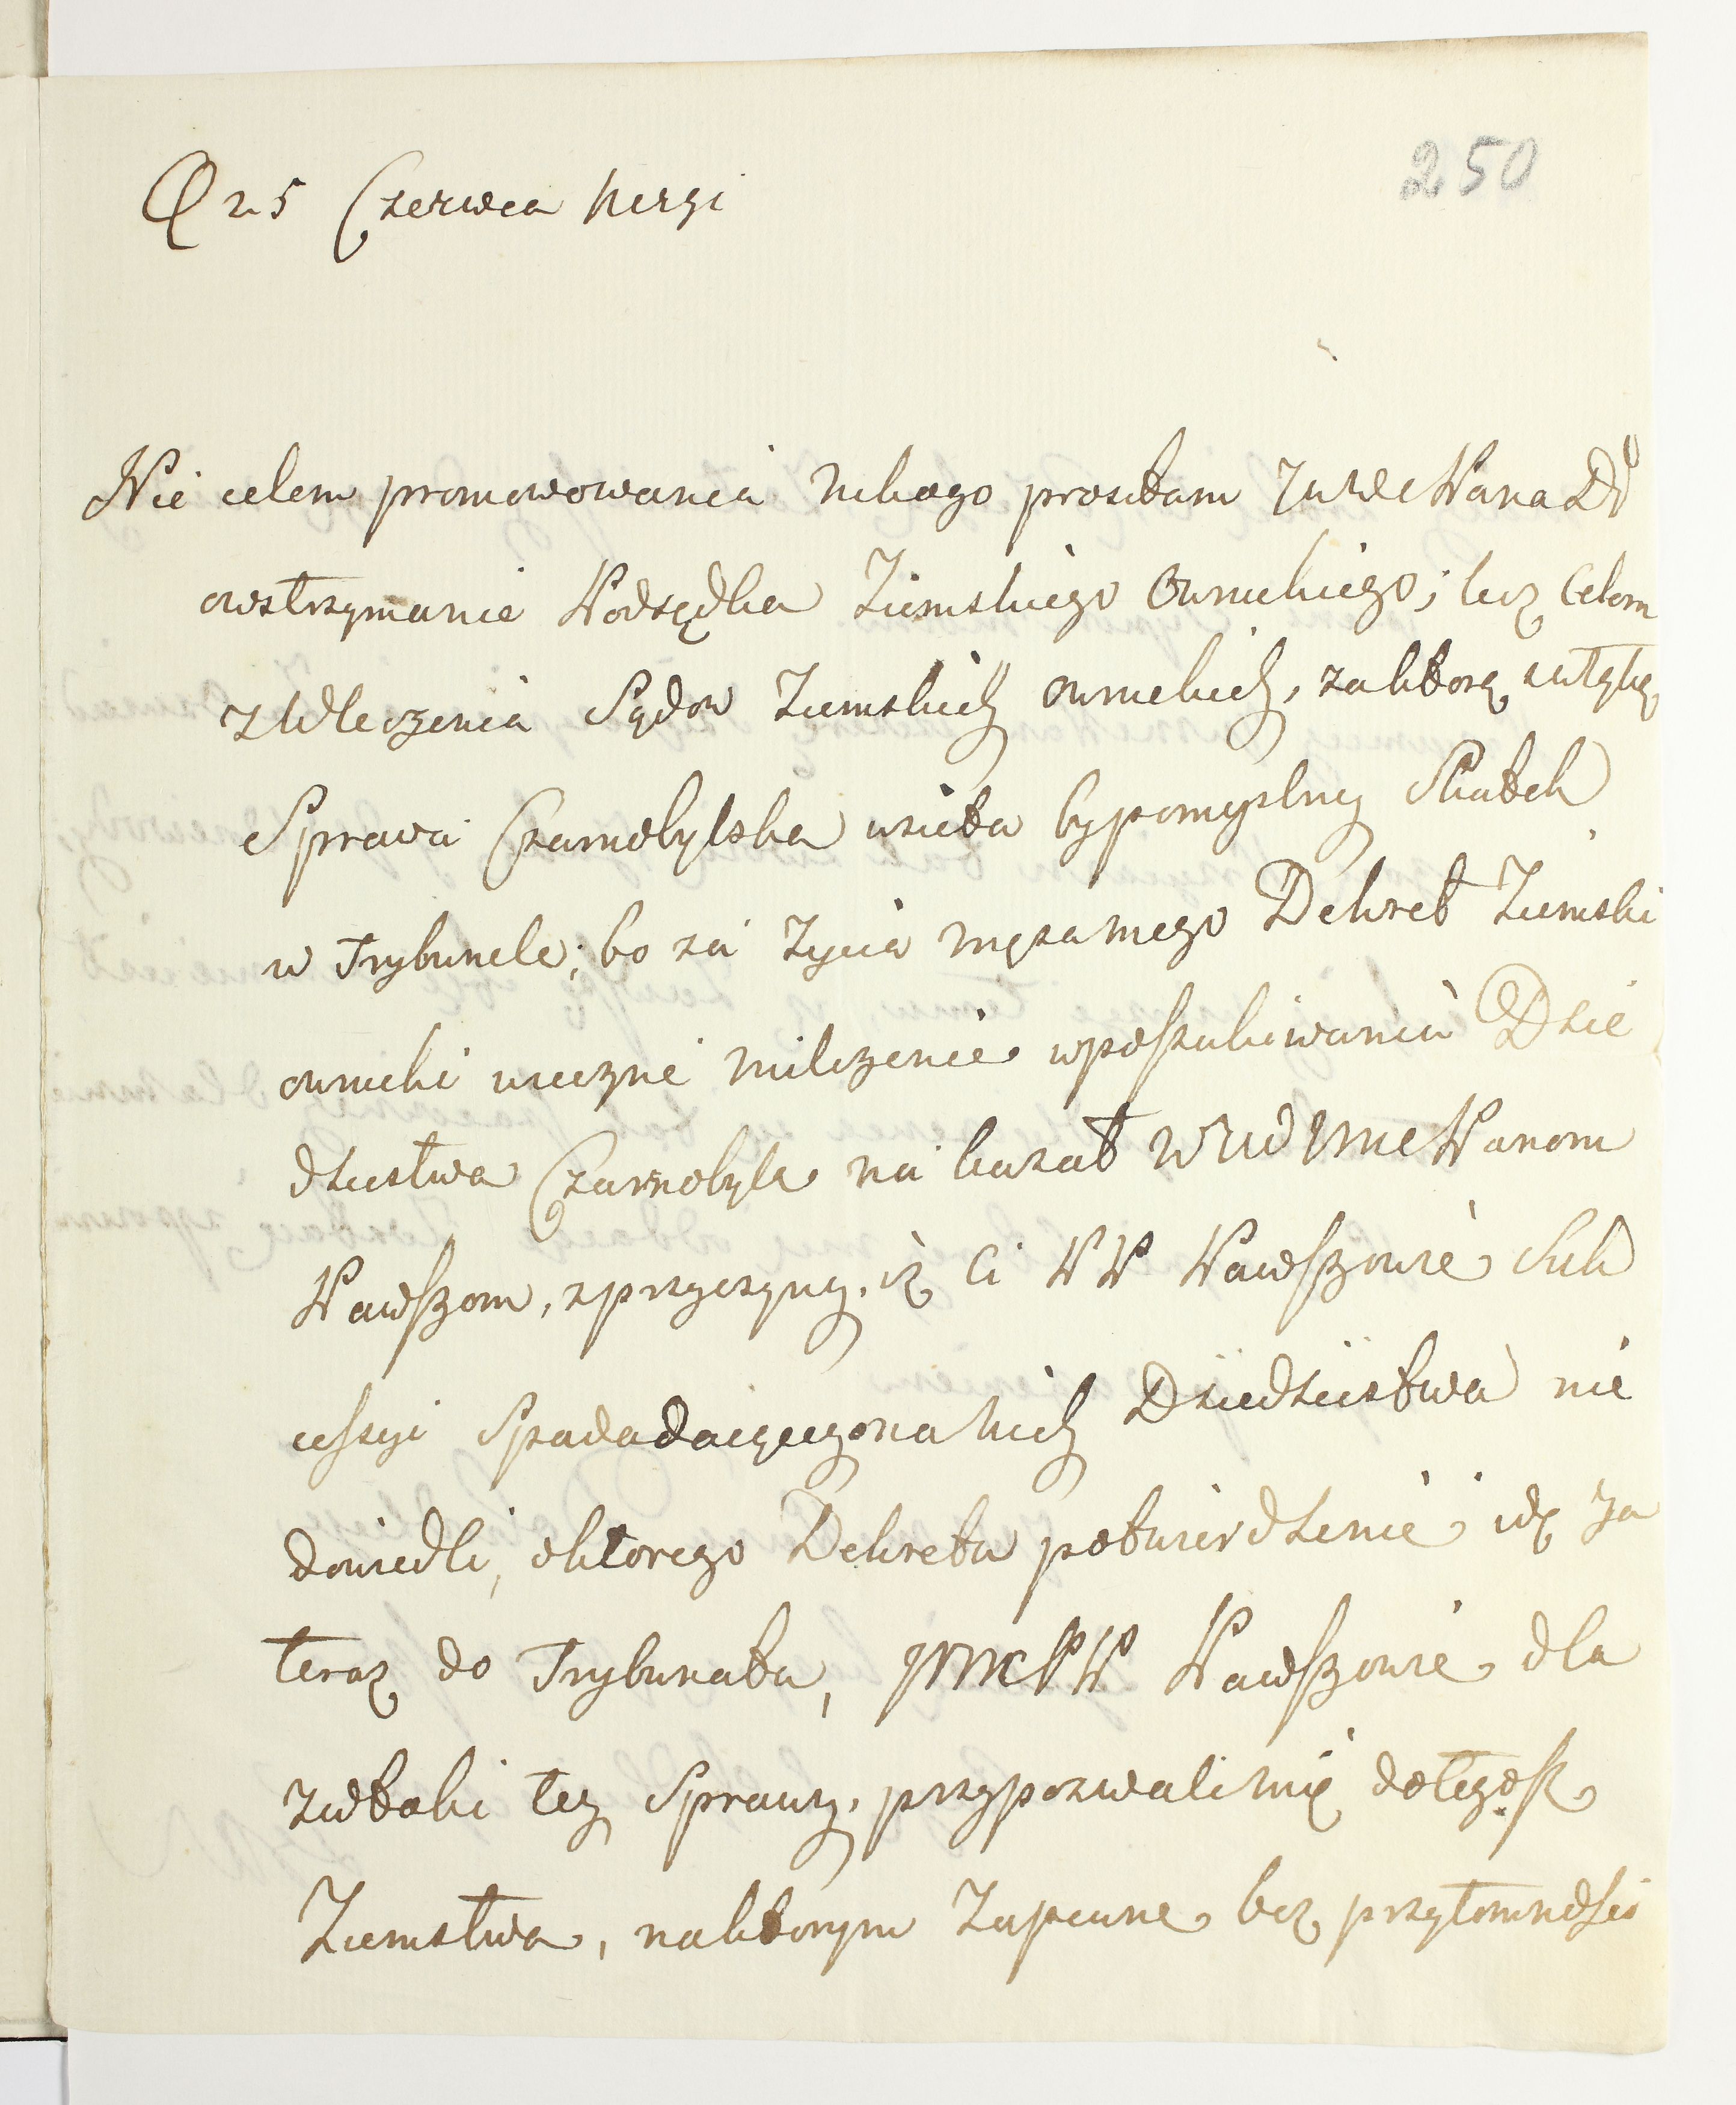 250
D 25 Czerwca
Nie celem promowowania prosiłam JWWPana Db
owstrzymanie Podsędka Ziemskiego Owruckiego; lecz Celem
zWleczenia Sądow Ziemskich owruckich, zaktorą
Sprawa Czarnobylska wzieła bypomyslny Skutek
w Trybunale; bo za Zycia męża mego Dekret Ziemski
owrucki wieczne milczenie wposzukiwaniu Dzie
dzictwa Czarnobyla na kazał WWJmcPanom
Pawszom, zprzyczyny, iż Ci WW Pawszowie Suk
cessyi Spadadaiącego na nich Dziedzictwa nie
dowiedli, oktorego Dekretu potwierdzenie idę Ja
teraz do Trybunału, JmcPP Pawszowie dla
zwłoki tey Sprawy, przypozwali mię dotegosz
Ziemstwa, naktorym Zapewne bez przytomnosci